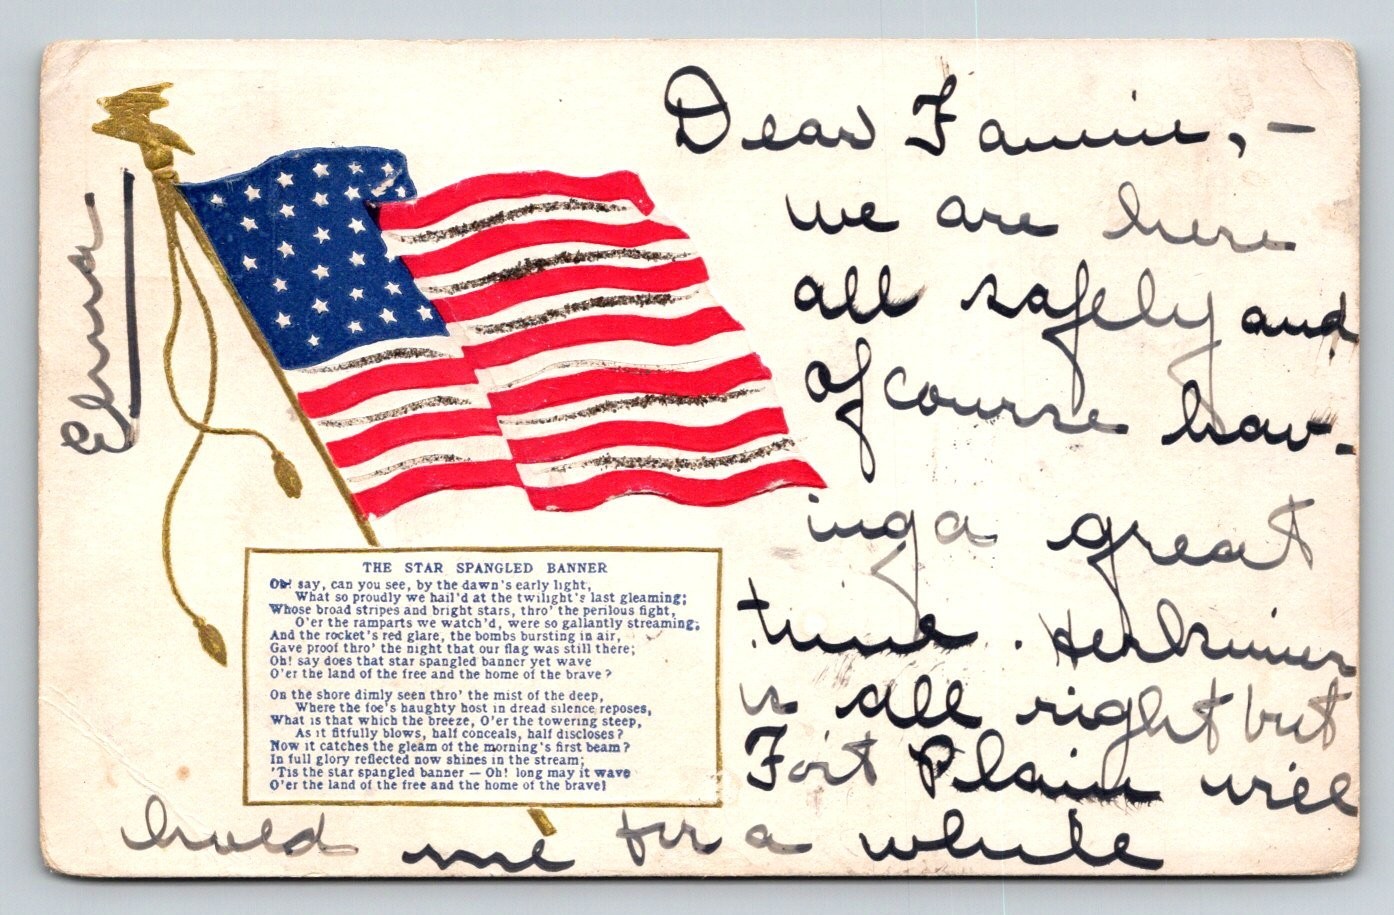 Dear Fannie, -
we are here
all safely and
of course hav-
ing a great
time. Herkimer
is all right but
Fort Plain will
hold me for a while
Elma
THE STAR SPANGLED BANNER
Oh! say, can you see, by the dawn's early light,
What so proudly we hail'd at the twilight's last gleaming;
Whose broad stripes and bright stars, thro' the perilous fight,
O'er the ramparts we watch'd, were so gallantly streaming;
And the rocket's red glare, the bombs bursting in air,
Gave proof thro' the night that our flag was still there;
Oh! say does that star spangled banner yet wave
O'er the land of the free and the home of the brave?
On the shore dimly seen thro' the mist of the deep,
Where the foe's haughty host in dread silence reposes,
What is that which the breeze, O'er the towering steep,
As it fitfully blows, half conceals, half discloses?
Now it catches the gleam of the morning's first beam?
In full glory reflected now shines in the stream;
'Tis the star spangled banner — Oh! long may it wave
O'er the land of the free and the home of the brave!